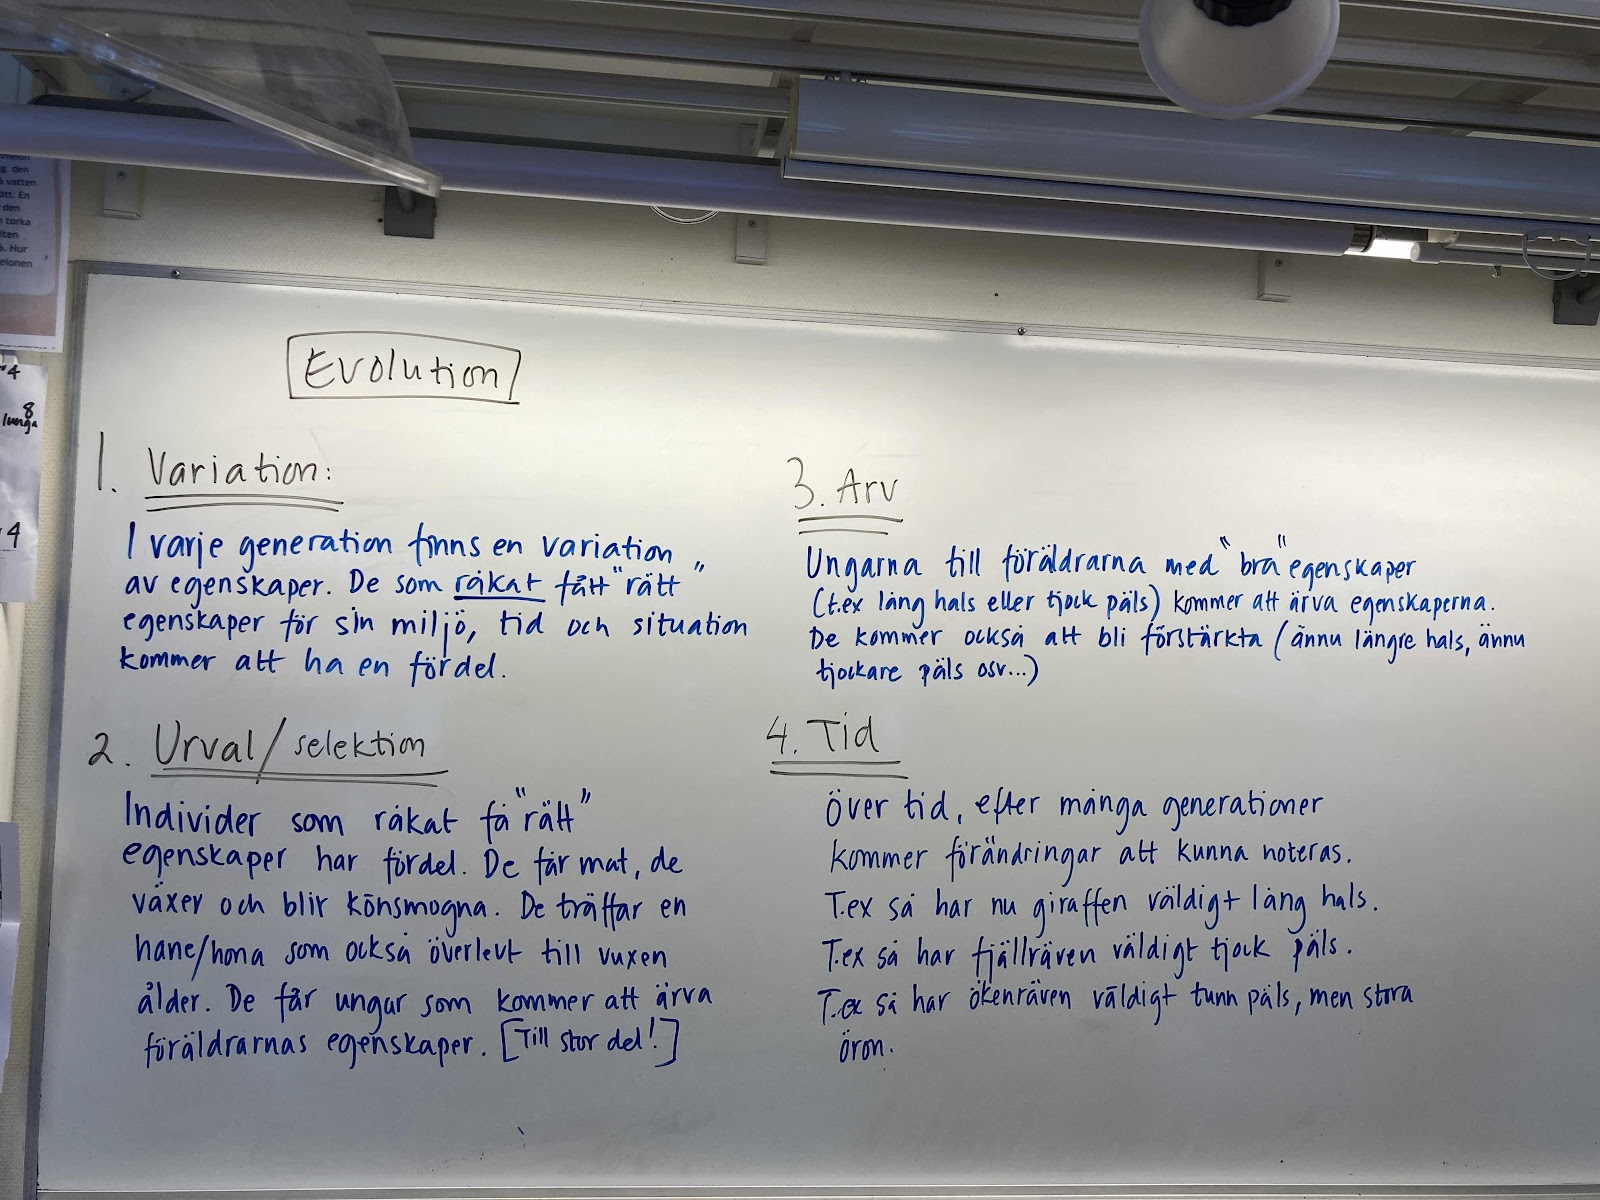 mmelin
g. den
å vatten
ött. En
den
torka
lten
å. Hur
elonen
4
8
lunga
4
Evolution
1. Variation:
I varje generation finns en variation
av egenskaper. De som råkat fått "rätt"
egenskaper för sin miljö, tid och situation
kommer att ha en fördel.
2. Urval/selektion
Individer som råkat få "rätt"
egenskaper har fördel. De får mat, de
växer och blir könsmogna. De träffar en
hane/hona som också överlevt till vuxen
ålder. De får ungar som kommer att ärva
föräldrarnas egenskaper. [Till stor del!]
3. Arv
Ungarna till föräldrarna med "bra" egenskaper
(t.ex lång hals eller tjock päls) kommer att ärva egenskaperna.
De kommer också att bli förstärkta (ännu längre hals, ännu
tjockare päls osv...)
4. Tid
Över tid, efter många generationer
kommer förändringar att kunna noteras.
T.ex så har nu giraffen väldigt lång hals.
T.ex så har fjällräven väldigt tjock päls.
T.ex så har ökenräven väldigt tunn päls, men stora
öron.